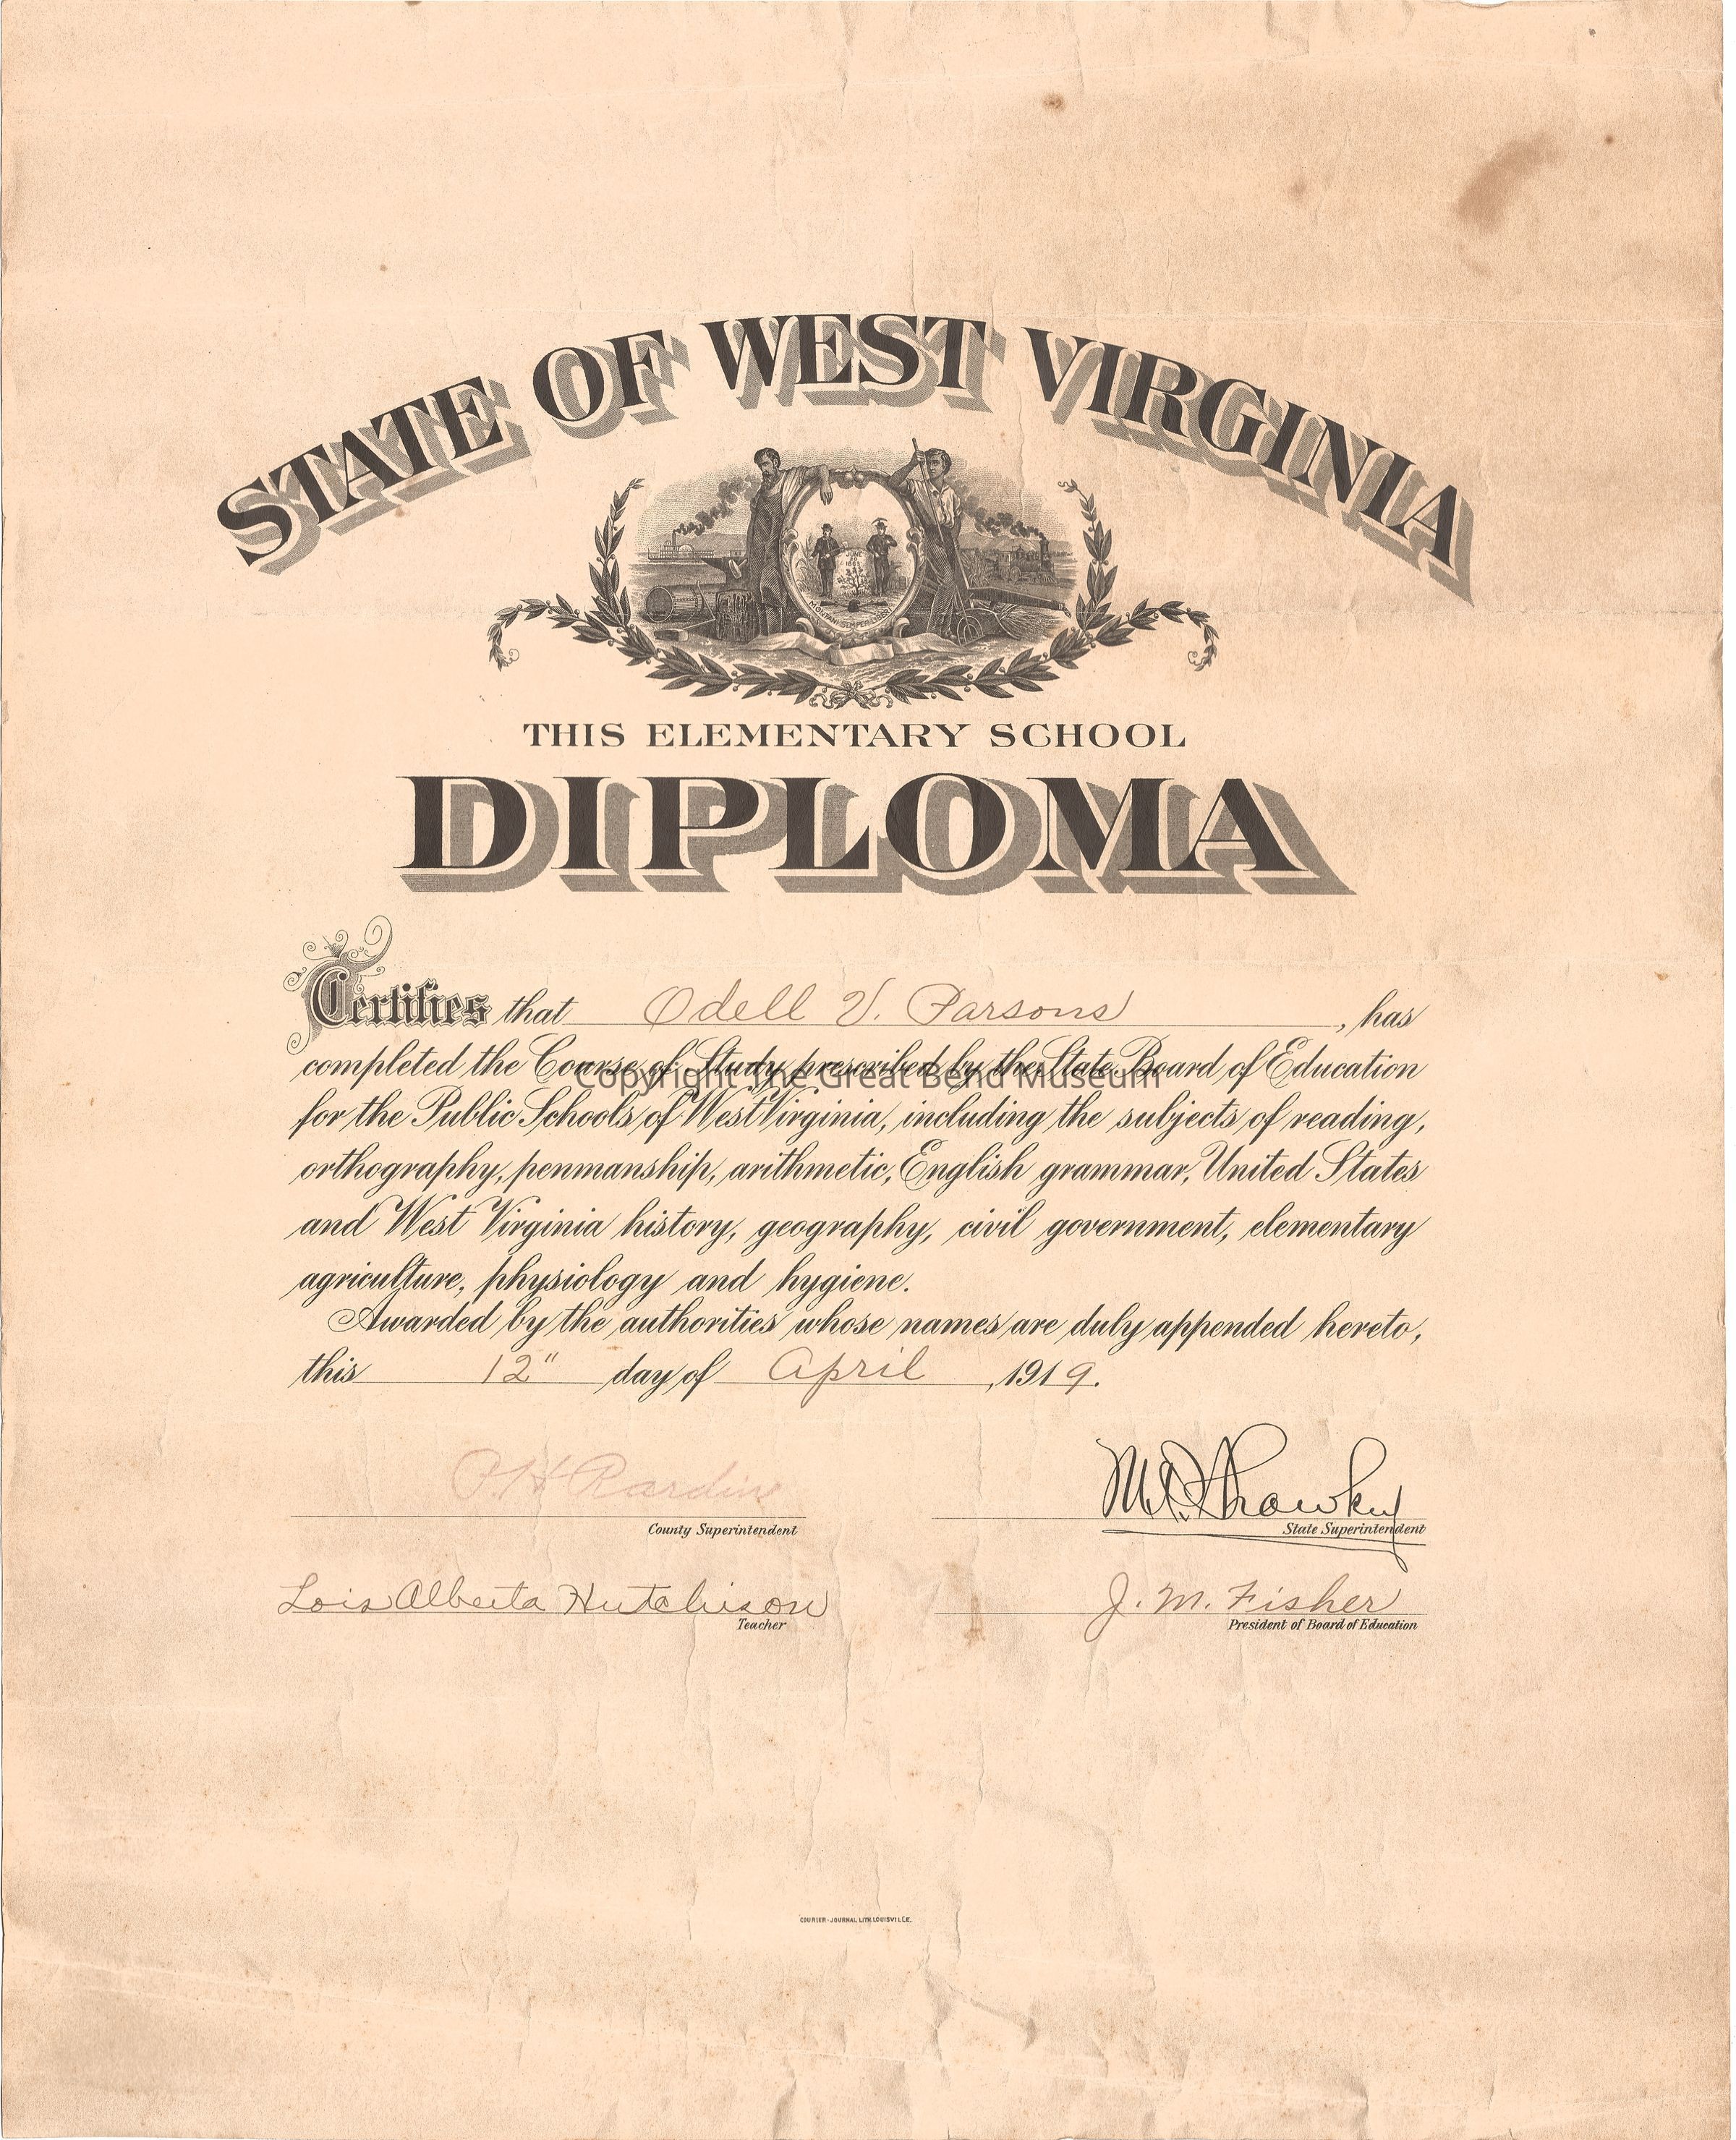 STATE OF WEST VIRGINIA
THIS ELEMENTARY SCHOOL
DIPLOMA
Certifies that Odell V. Parsons, has
completed the Course of Study prescribed by the State Board of Education
Copyright The Great Bend Museum
for the Public Schools of West Virginia, including the subjects of reading,
orthography, penmanship, arithmetic, English grammar, United States
and West Virginia history, geography, civil government, elementary
agriculture, physiology and hygiene.
Awarded by the authorities whose names are duly appended hereto,
this 12" day of April, 1919.
P. H. Rardin
County Superintendent
State Superintendent
Lois Alberta Hutchison
Teacher
J. M. Fisher
President of Board of Education
COURIER-JOURNAL LITH. LOUISVILLE.